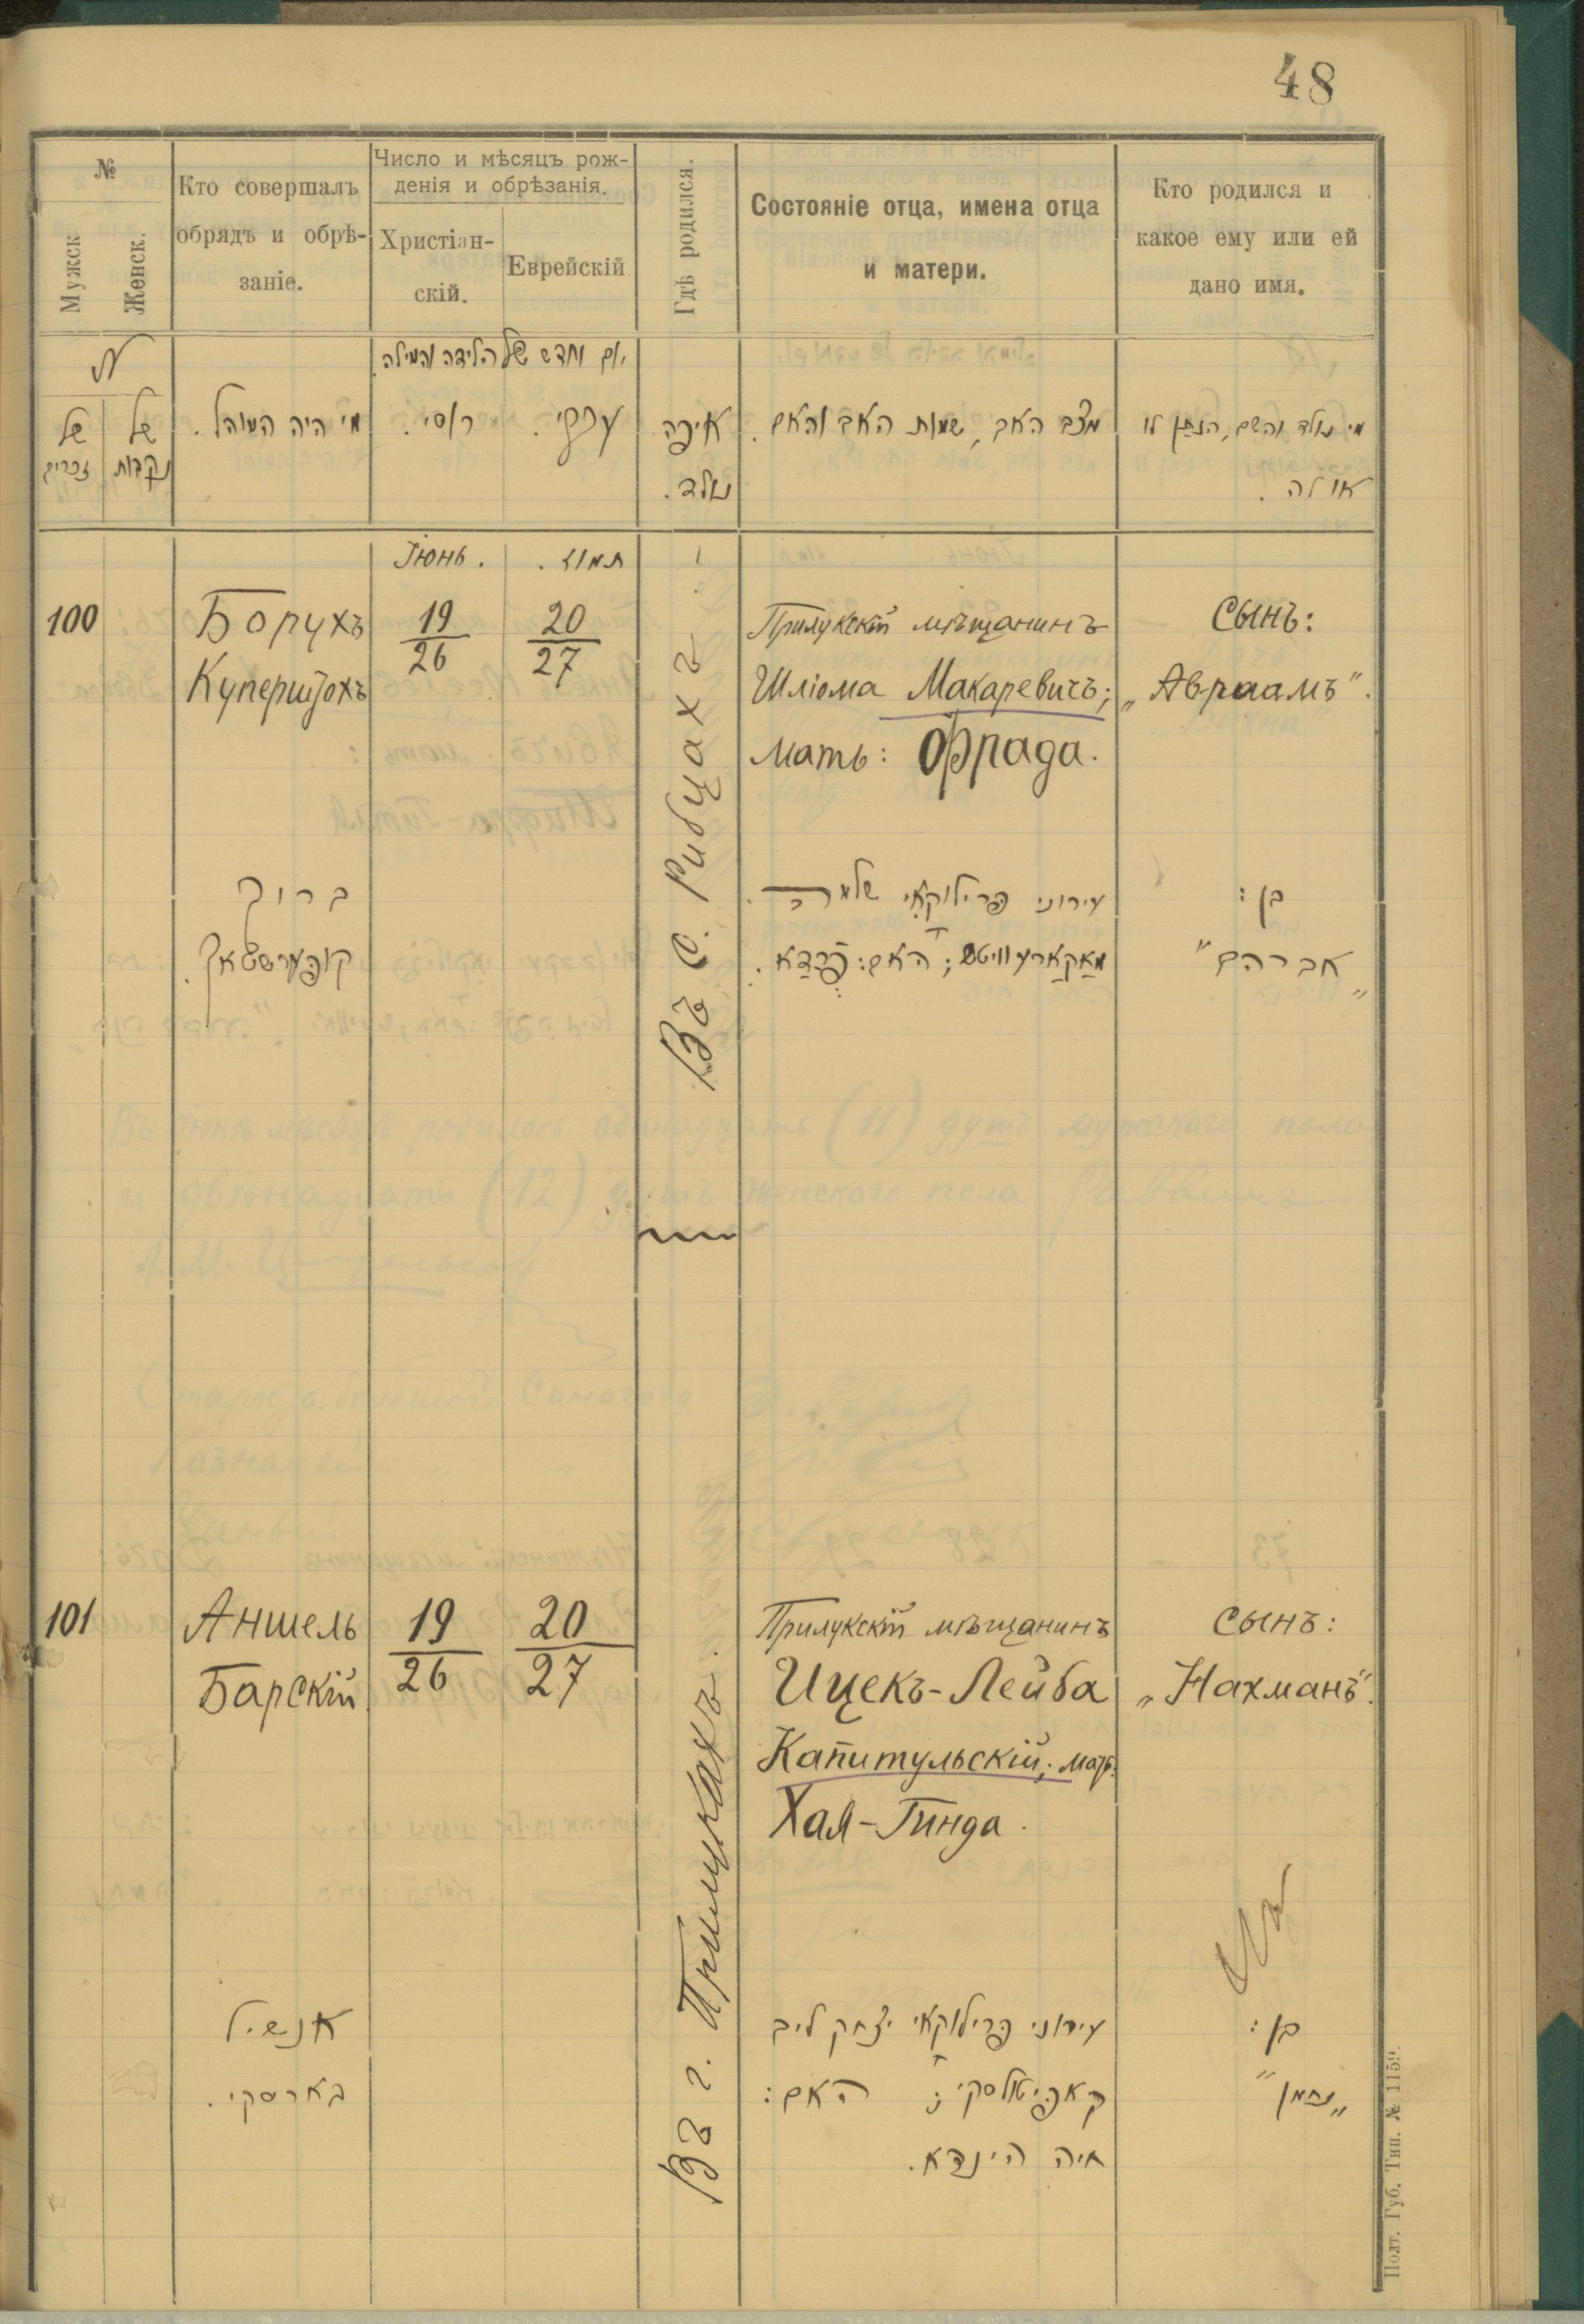 48
№
Мужск
Женск.
Кто совершалъ
обрядъ и обрѣ-
заніе.
Число и мѣсяцъ рож-
денія и обрѣзанія.
Христіан-
скій.
Еврейскій
Гдѣ родился.
Состояніе отца, имена отца
и матери.
Кто родился и
какое ему или ей
дано имя.
№
של
זכרים
של
נקבות
מי היה המוהל.
יום וחדש של הלידה והמילה.
רוסי.
עברי.
איפה
נולד.
מצב האב, שמות האב והאם.
מי נולד והשם, הנתן לו
או לה.
Іюнь.
תמוז.
100
Борухъ
Куперштохъ
19
26
20
27
Въ с. Рибцахъ.
Прилукскій мѣщанинъ
Шліома Макаревичъ;
мать: Фрада.
Сынъ:
„Авраамъ".
ברוך
קופערשטאך.
עירוני פרילוקאי שלמה
מאקארעוויטש; האם: פרדא.
בן:
„אברהם"
101
Аншель
Барскій
19
26
20
27
Въ г. Прилукахъ.
Прилукскій мѣщанинъ
Ицекъ-Лейба
Капитульскій; мать:
Хая-Гинда.
Сынъ:
„Нахманъ".
אנשיל
בארסקי.
עירוני פרילוקאי יצחק ליב
קאפיטולסקי; האם:
חיה הינדא.
בן:
„נחמן"
Полт. Губ. Тип. № 1159.